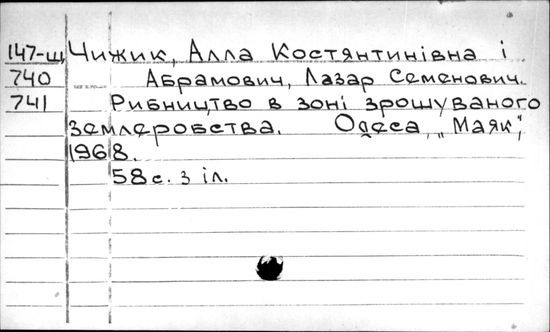 147-щ Чижик, Алла Костянтинівна і
740 Абрамович, Лазар Семенович.
741 Рибництво в зоні зрошуваного
землеробства. Одеса, „Маяк",
1968.
58 с. з іл.